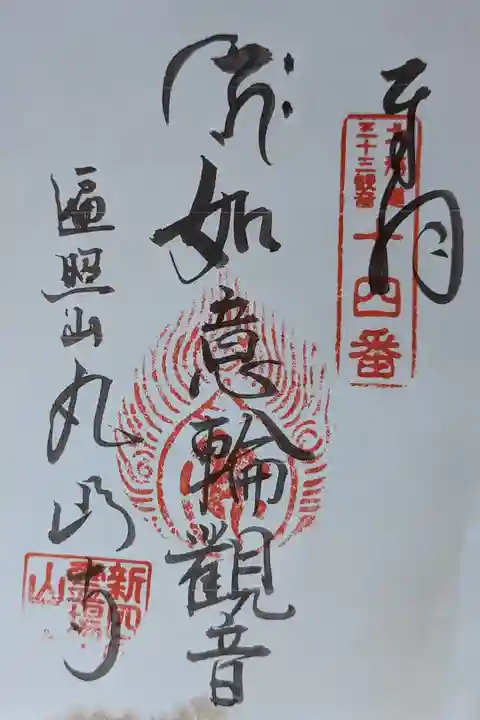 奉拝
三十三観音
十四番
如意輪觀音
遍照山丸山寺
新四
霊場
山